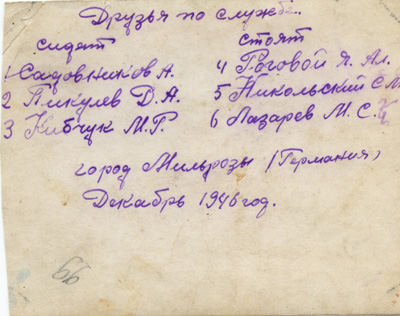 Друзья по службе.
сидят стоят
1 Садовников А. 4 Роговой Я. Ал.
2 Пикулев Д. А. 5 Никольский С М
3 Кибчук М. Г. 6 Лазарев М. С.
город Мильрозы (Германия)
Декабрь 1946 год.